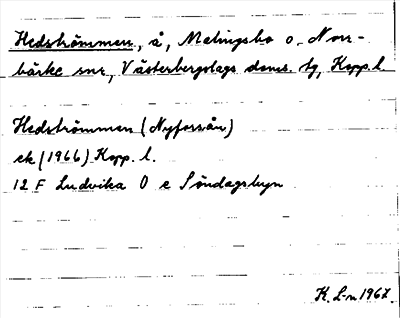 Hedströmmen, å, Malingsbo o. Norr-
bärke snr, Västerbergslags doms. tg, Kopp. l.
Hedströmmen (Nyforsån)
ek (1966) Kopp. l.
12 F Ludvika O e Söndagsbyn
K. L-n 1967.